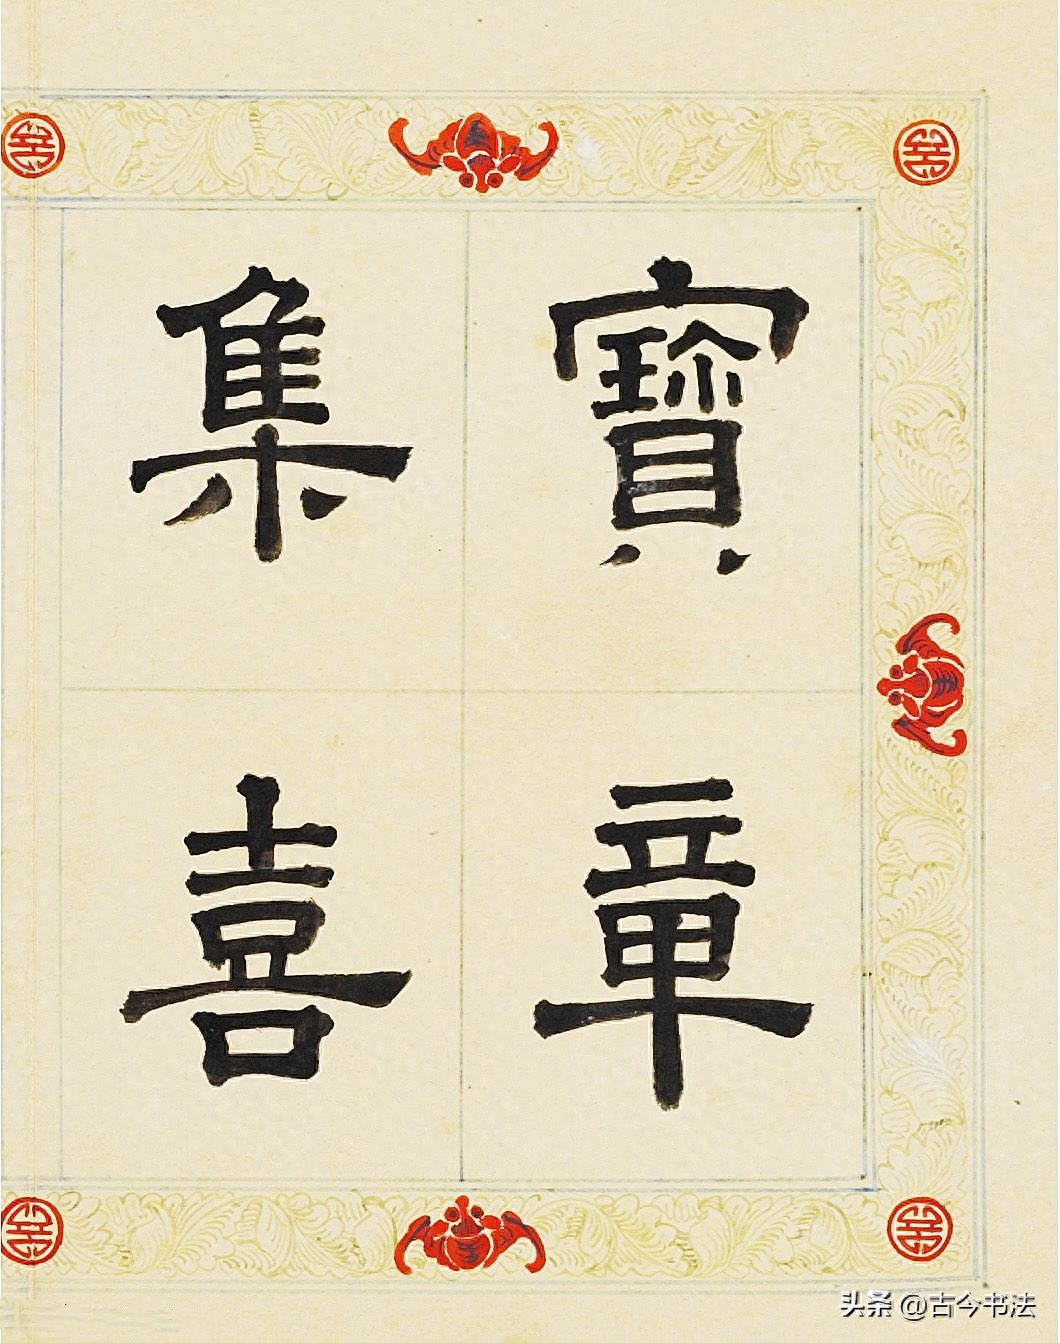 寶章
集喜
头条 @古今书法